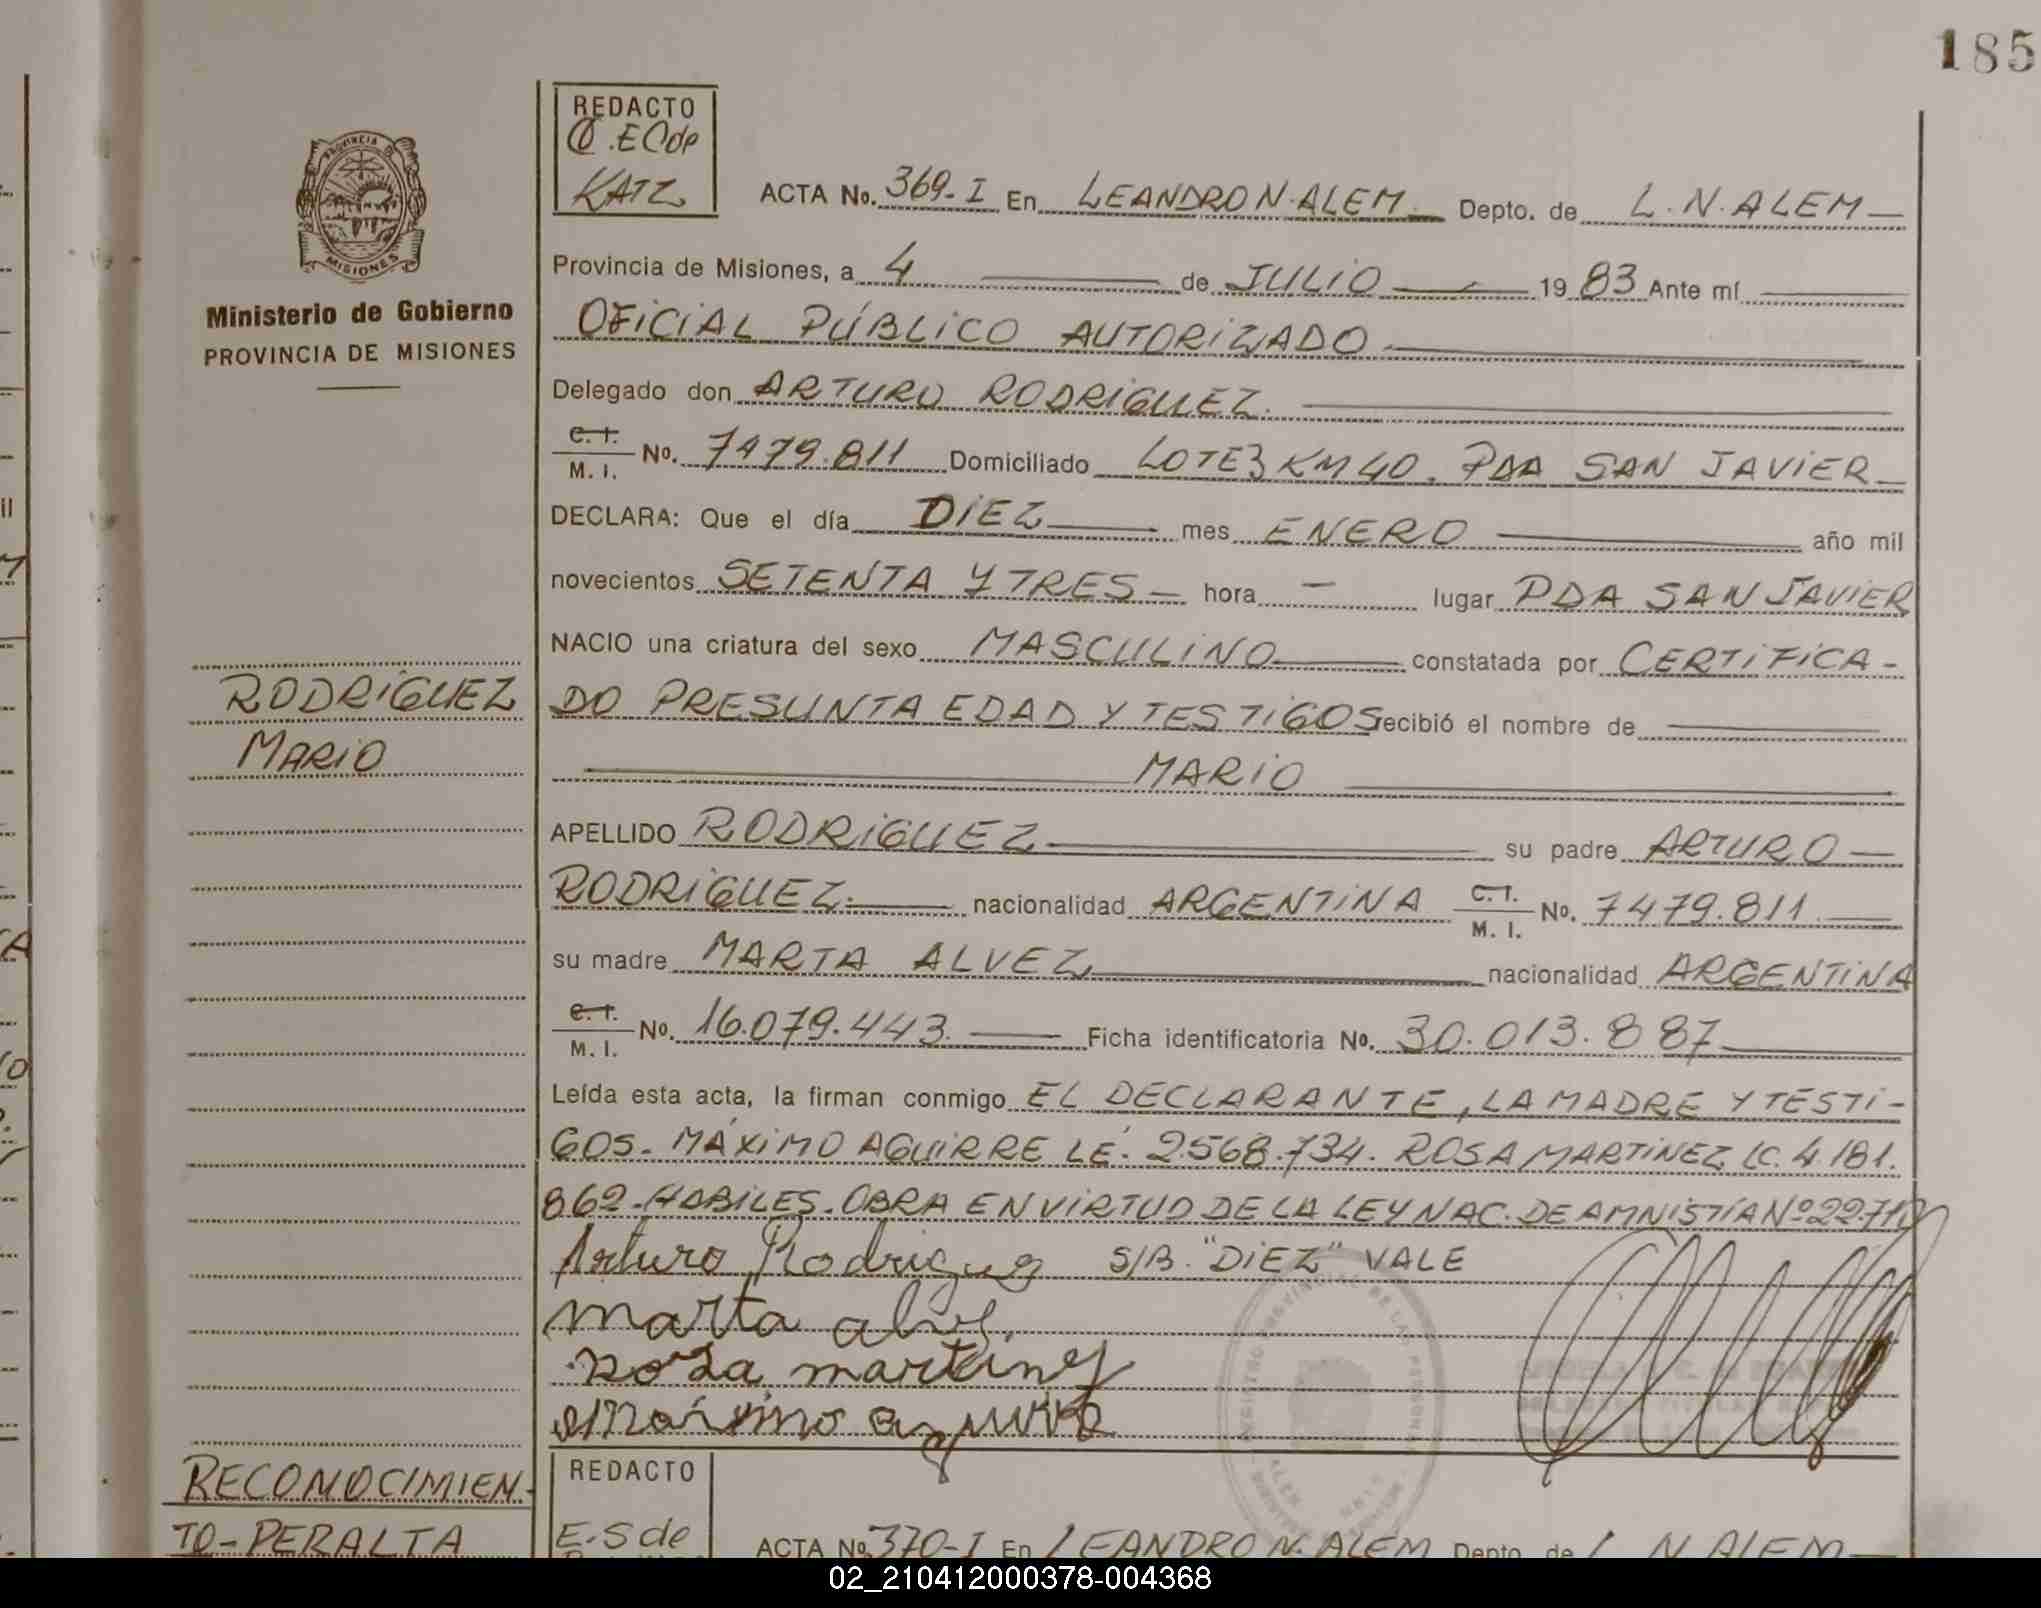 185
REDACTO
C. E C de
KATZ
PROVINCIA DE
MISIONES
Ministerio de Gobierno
PROVINCIA DE MISIONES
ACTA No. 369-I En LEANDRO N. ALEM Depto. de L. N. ALEM
Provincia de Misiones, a 4 de JULIO 1983 Ante mí
OFICIAL PÚBLICO AUTORIZADO
Delegado don ARTURO RODRIGUEZ.
C. I. M. I. No. 7479.811 Domiciliado LOTE 3 KM 40. PDA SAN JAVIER
DECLARA: Que el día DIEZ mes ENERO año mil
novecientos SETENTA Y TRES hora — lugar PDA SAN JAVIER
NACIO una criatura del sexo MASCULINO constatada por CERTIFICA-
DO PRESUNTA EDAD Y TESTIGOS ecibió el nombre de
MARIO
RODRIGUEZ
MARIO
APELLIDO RODRIGUEZ su padre ARTURO
RODRIGUEZ. nacionalidad ARGENTINA C. I. M. I. No. 7479.811
su madre MARTA ALVEZ nacionalidad ARGENTINA
C. I. M. I. No. 16.079.443. Ficha identificatoria No. 30.013.887
Leída esta acta, la firman conmigo EL DECLARANTE, LA MADRE Y TESTI-
GOS- MÁXIMO AGUIRRE LE. 2568.734. ROSA MARTINEZ LC. 4.181.
862-HABILES. OBRA EN VIRTUD DE LA LEY NAC. DE AMNISTÍA Nº 22.710
Arturo Rodriguez S/B. "DIEZ" VALE
marta alvez.
rosa martinez
maximo aguirre
RECONOCIMIEN-
TO-PERALTA
REDACTO
E. S de
ACTA No. 370-I En LEANDRO N. ALEM Depto. de L. N. ALEM
02_210412000378-004368